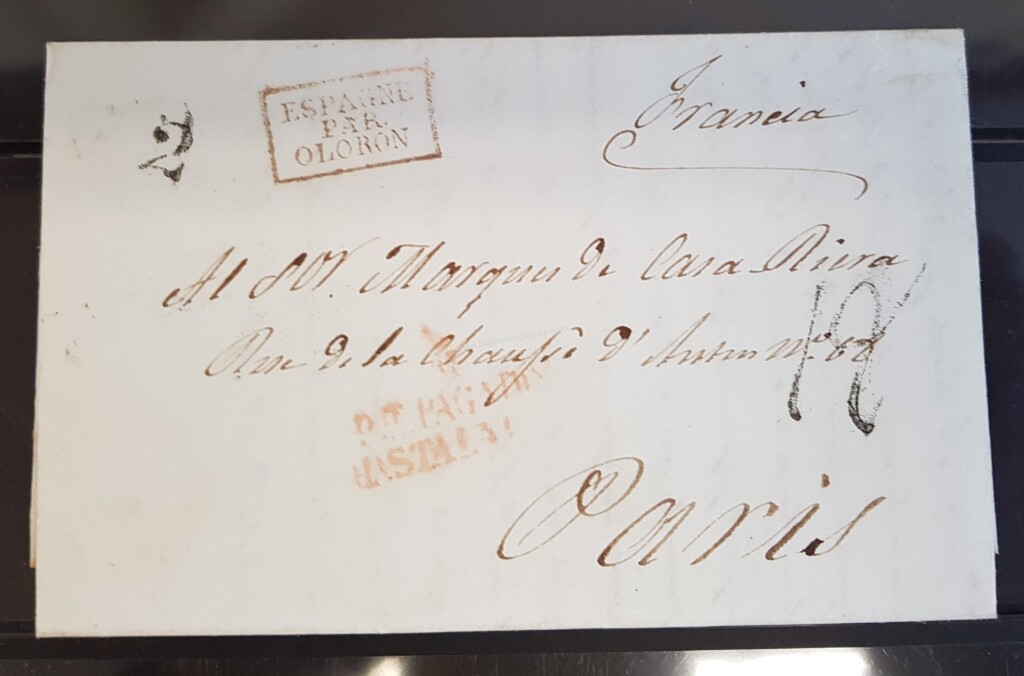 2
ESPAGNE
PAR
OLORON
Francia
Al Sor. Marques de Casa Riera
Rue de la Chaussé d'Antin nº 68
12
Paris